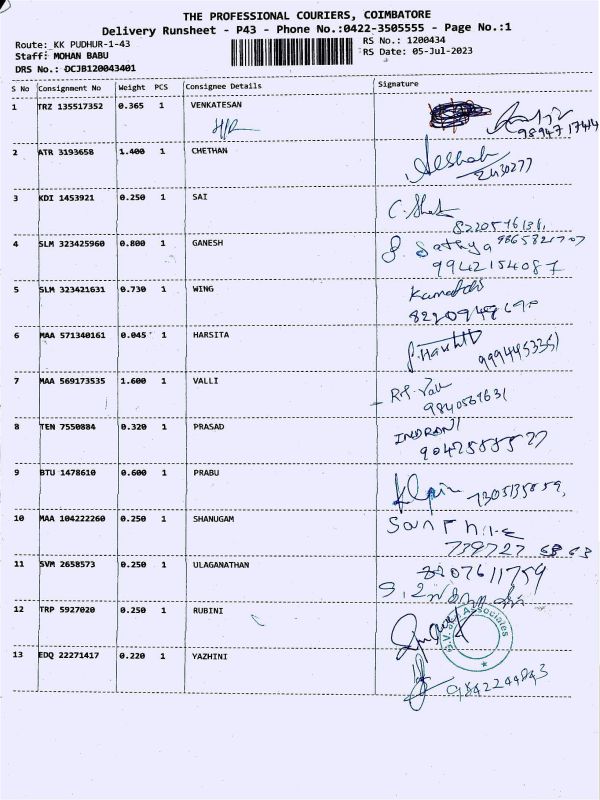 THE PROFESSIONAL COURIERS, COIMBATORE
Delivery Runsheet - P43 - Phone No.:0422-3505555 - Page No.:1
Route: KK PUDHUR-1-43 RS No.: 1200434
Staff: MOHAN BABU RS Date: 05-Jul-2023
DRS No.: DCJB120043401
S No Consignment No Weight PCS Consignee Details Signature
1 TRZ 135517352 0.365 1 VENKATESAN
2 ATR 3193658 1.400 1 CHETHAN
2430277
3 KDI 1453921 0.250 1 SAI
4 SLM 323425960 0.800 1 GANESH
S. Sathya 9865821707
9942154087
5 SLM 323421631 0.730 1 WING
6 MAA 571340161 0.045 1 HARSITA
9994453351
7 MAA 569173535 1.600 1 VALLI
9840569631
8 TEN 7550884 0.320 1 PRASAD
INDRANI
9 BTU 1478610 0.600 1 PRABU
7305135859
10 MAA 104222260 0.250 1 SHANUGAM
739727 6363
11 SVM 2658573 0.250 1 ULAGANATHAN
12 TRP 5927020 0.250 1 RUBINI
Associates
13 EDQ 22271417 0.220 1 YAZHINI
9842244843